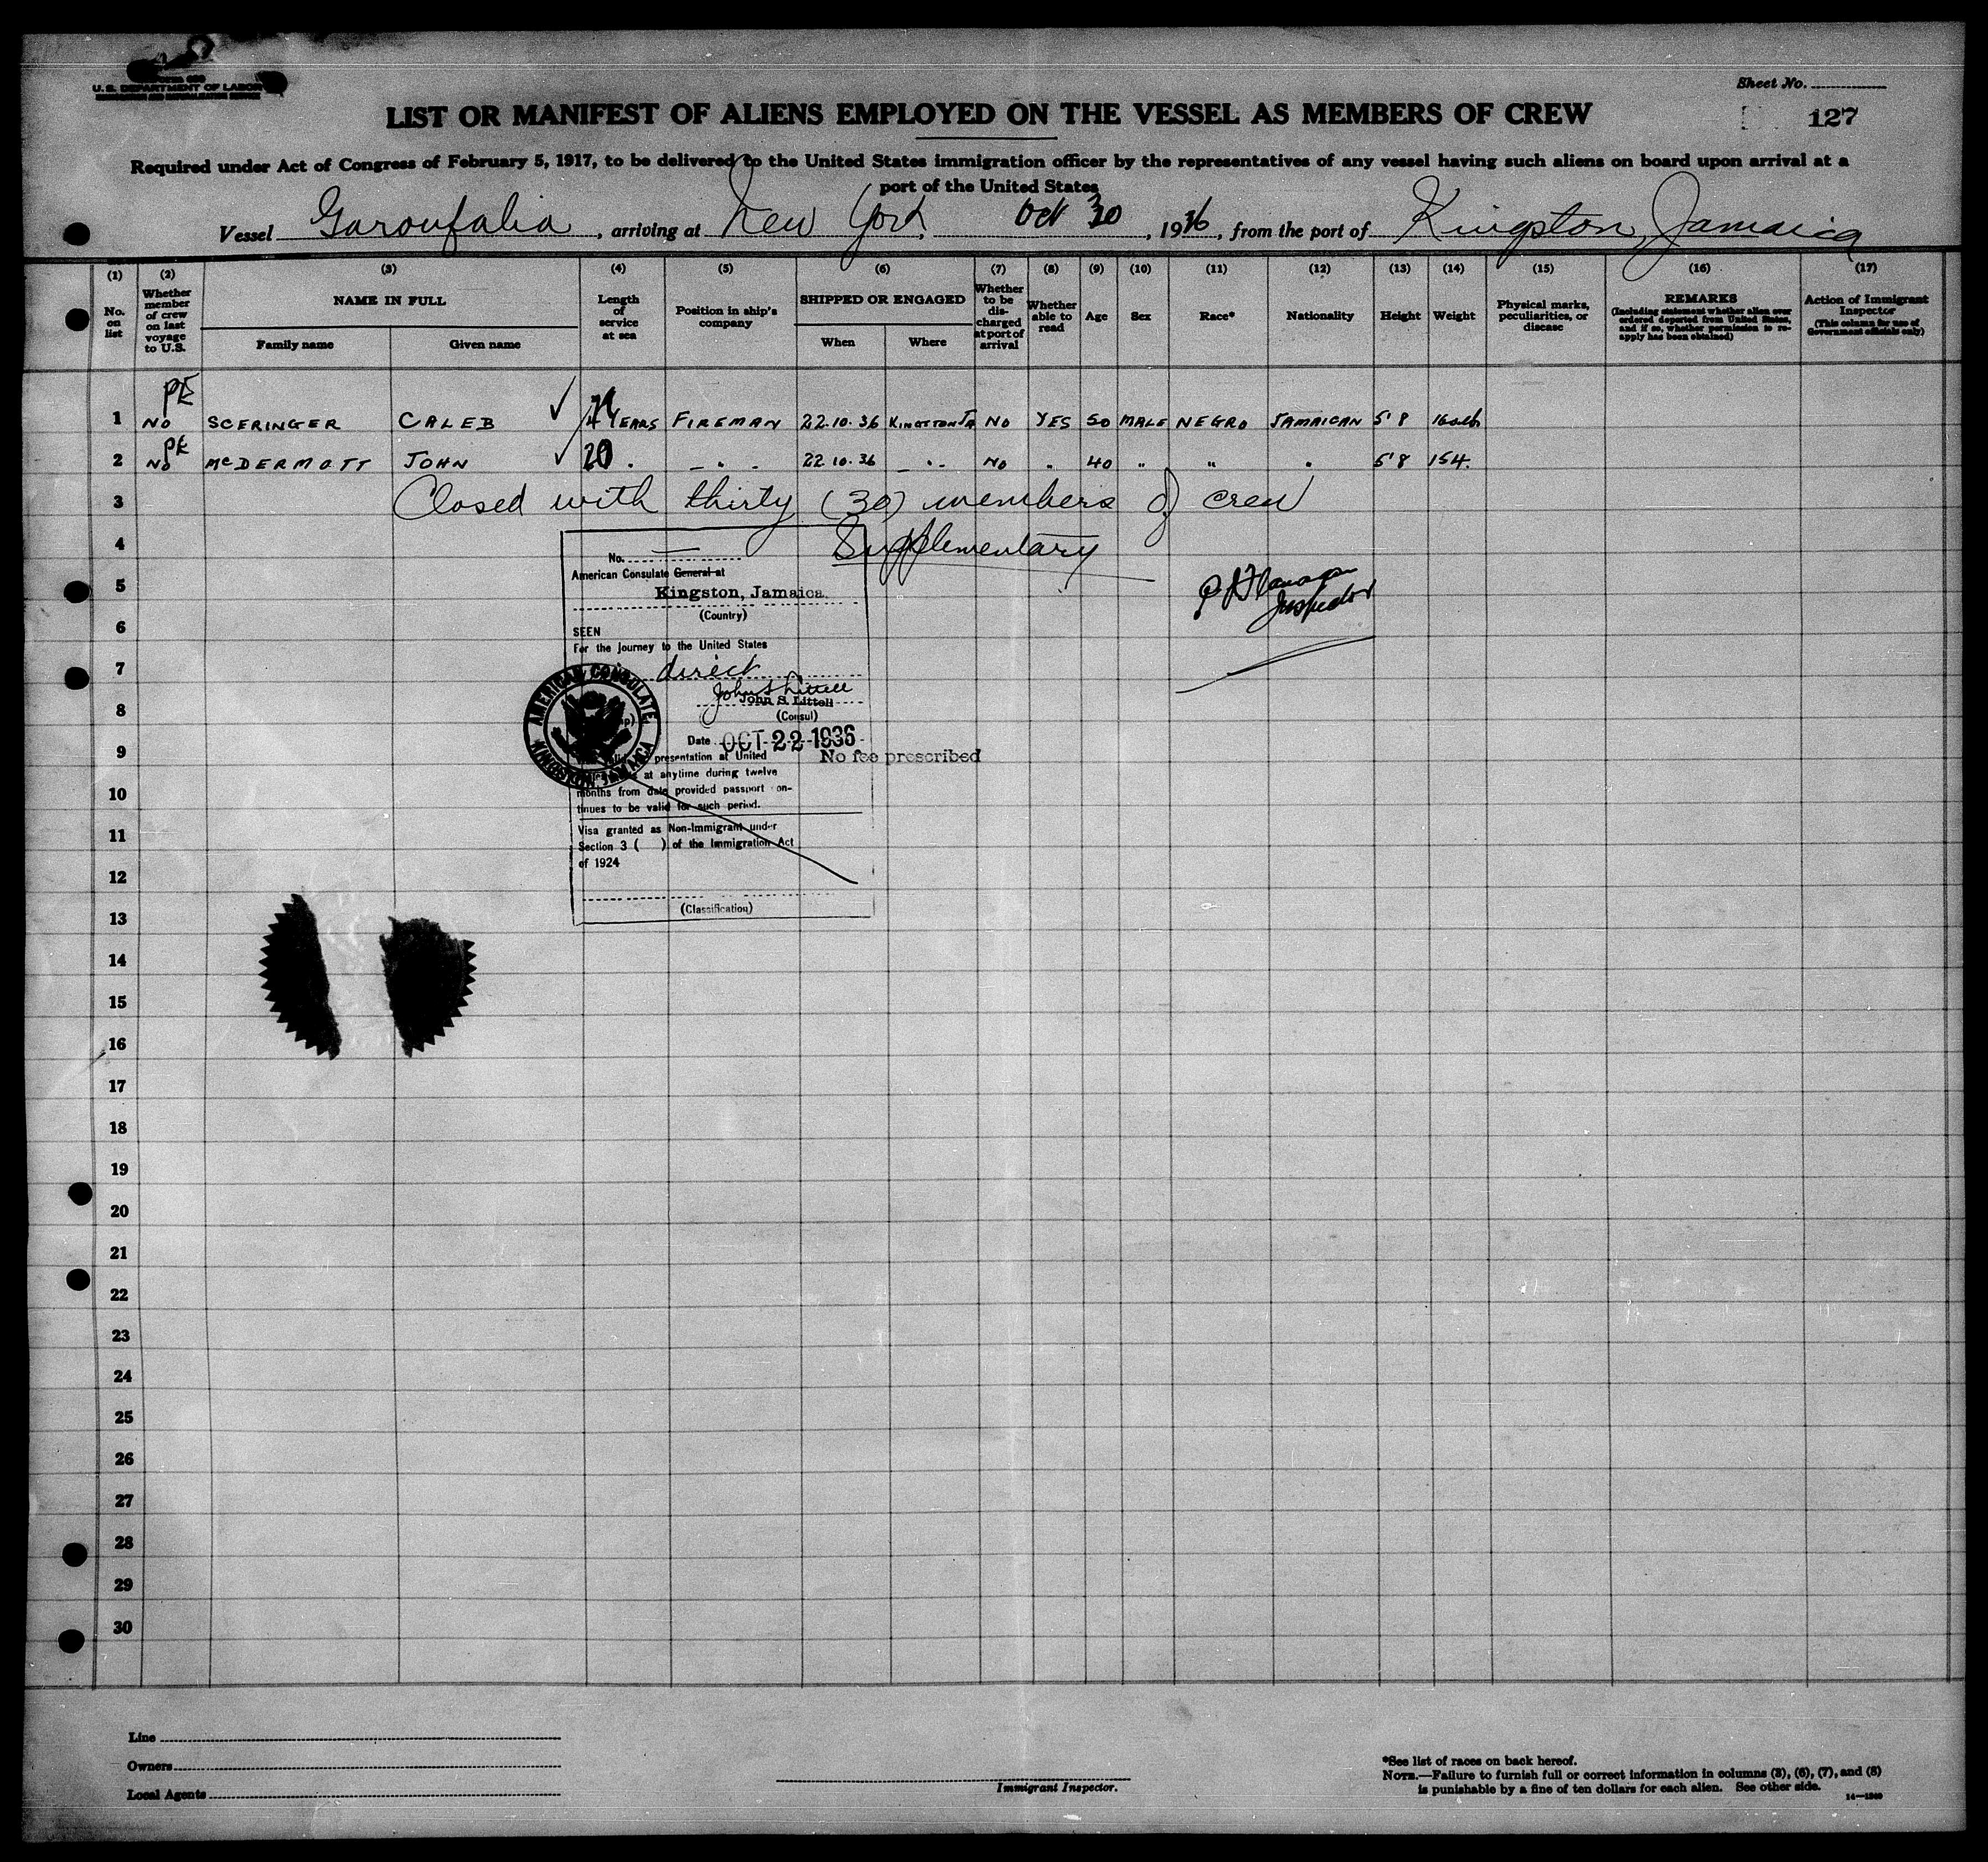 U. S. DEPARTMENT OF LABOR
Sheet No.
LIST OR MANIFEST OF ALIENS EMPLOYED ON THE VESSEL AS MEMBERS OF CREW
127
Required under Act of Congress of February 5, 1917, to be delivered to the United States immigration officer by the representatives of any vessel having such aliens on board upon arrival at a
port of the United States
Vessel Garoufalia, arriving at New York, Oct 30, 1936, from the port of Kingston, Jamaica
(1) (2) (3) (4) (5) (6) (7) (8) (9) (10) (11) (12) (13) (14) (15) (16) (17)
No. on list
Whether member of crew on last voyage to U.S.
NAME IN FULL
Family name
Given name
Length of service at sea
Position in ship's company
SHIPPED OR ENGAGED
When
Where
Whether to be discharged at port of arrival
Whether able to read
Age
Sex
Race*
Nationality
Height
Weight
Physical marks, peculiarities, or disease
REMARKS
(Including statement whether alien ever ordered deported from United States, and if so, whether permission to reapply has been obtained)
Action of Immigrant Inspector
(This column for use of Government officials only)
1 No SCERINGER CALEB YEARS FIREMAN 22.10.36 KINGSTON JA NO YES 50 MALE NEGRO JAMAICAN 5'8 160 lb
2 No McDERMOTT JOHN 20 " 22.10.36 " NO " 40 " " " 5'8 154.
3 Closed with thirty (30) members of crew
4 Supplementary
5
6
7
8
9
10
11
12
13
14
15
16
17
18
19
20
21
22
23
24
25
26
27
28
29
30
No.
American Consulate General at
Kingston, Jamaica.
(Country)
SEEN
For the journey to the United States
direct
John S Littell
John S. Littell
(Consul)
Date OCT 22 1936
No fee prescribed
presentation at United
at anytime during twelve
months from date provided passport con-
tinues to be valid for such period.
Visa granted as Non-Immigrant under
Section 3 ( ) of the Immigration Act
of 1924
(Classification)
AMERICAN CONSULATE
KINGSTON JAMAICA
Inspector
Line
Owners
Local Agents
Immigrant Inspector.
*See list of races on back hereof.
NOTE.—Failure to furnish full or correct information in columns (3), (6), (7), and (8)
is punishable by a fine of ten dollars for each alien. See other side.